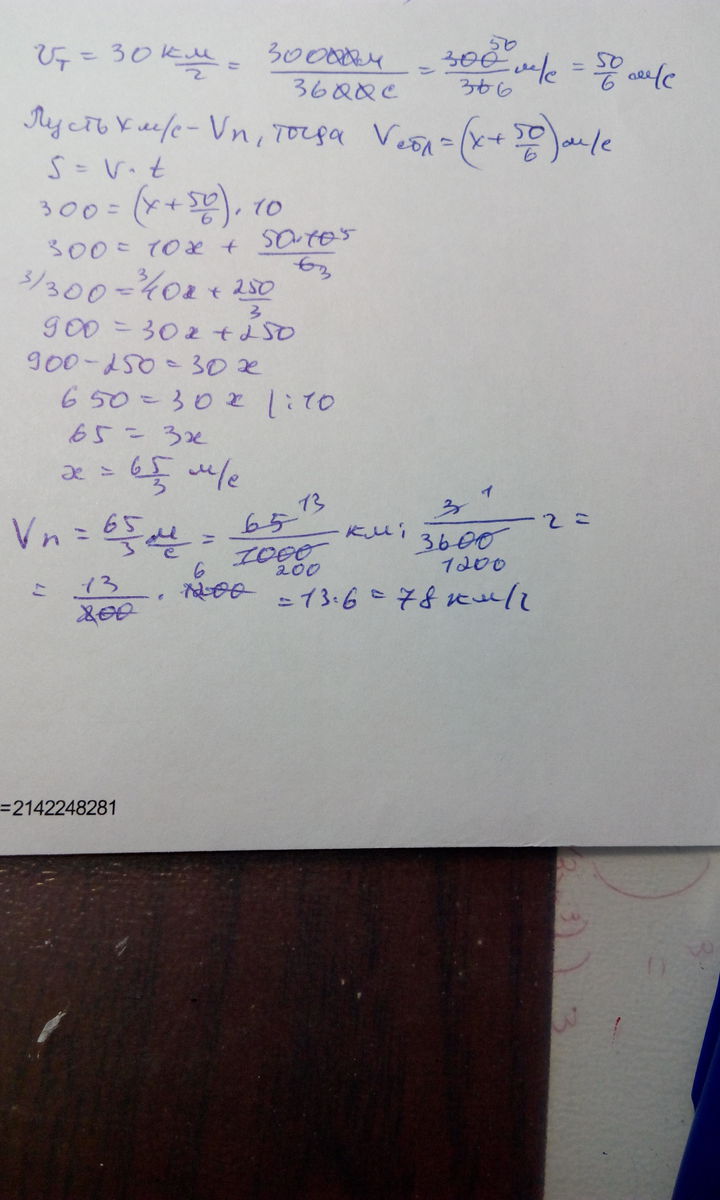 Vт = 30 км/г = 30000м/3600с = 300 50/36 6 м/с = 50/6 м/с
Пусть x м/с - Vп, тогда Vсбл = (x + 50/6) м/с
S = V · t
300 = (x + 50/6) · 10
300 = 10x + 50·10 5/6 3
3/ 300 = 3/ 10x + 250/3
900 = 30x + 250
900 - 250 = 30x
650 = 30x | : 10
65 = 3x
x = 65/3 м/с
Vп = 65/3 м/с = 65 13/1000 200 км : 3 1/3600 1200 г =
= 13/200 · 1200 6 = 13·6 = 78 км/г
=2142248281